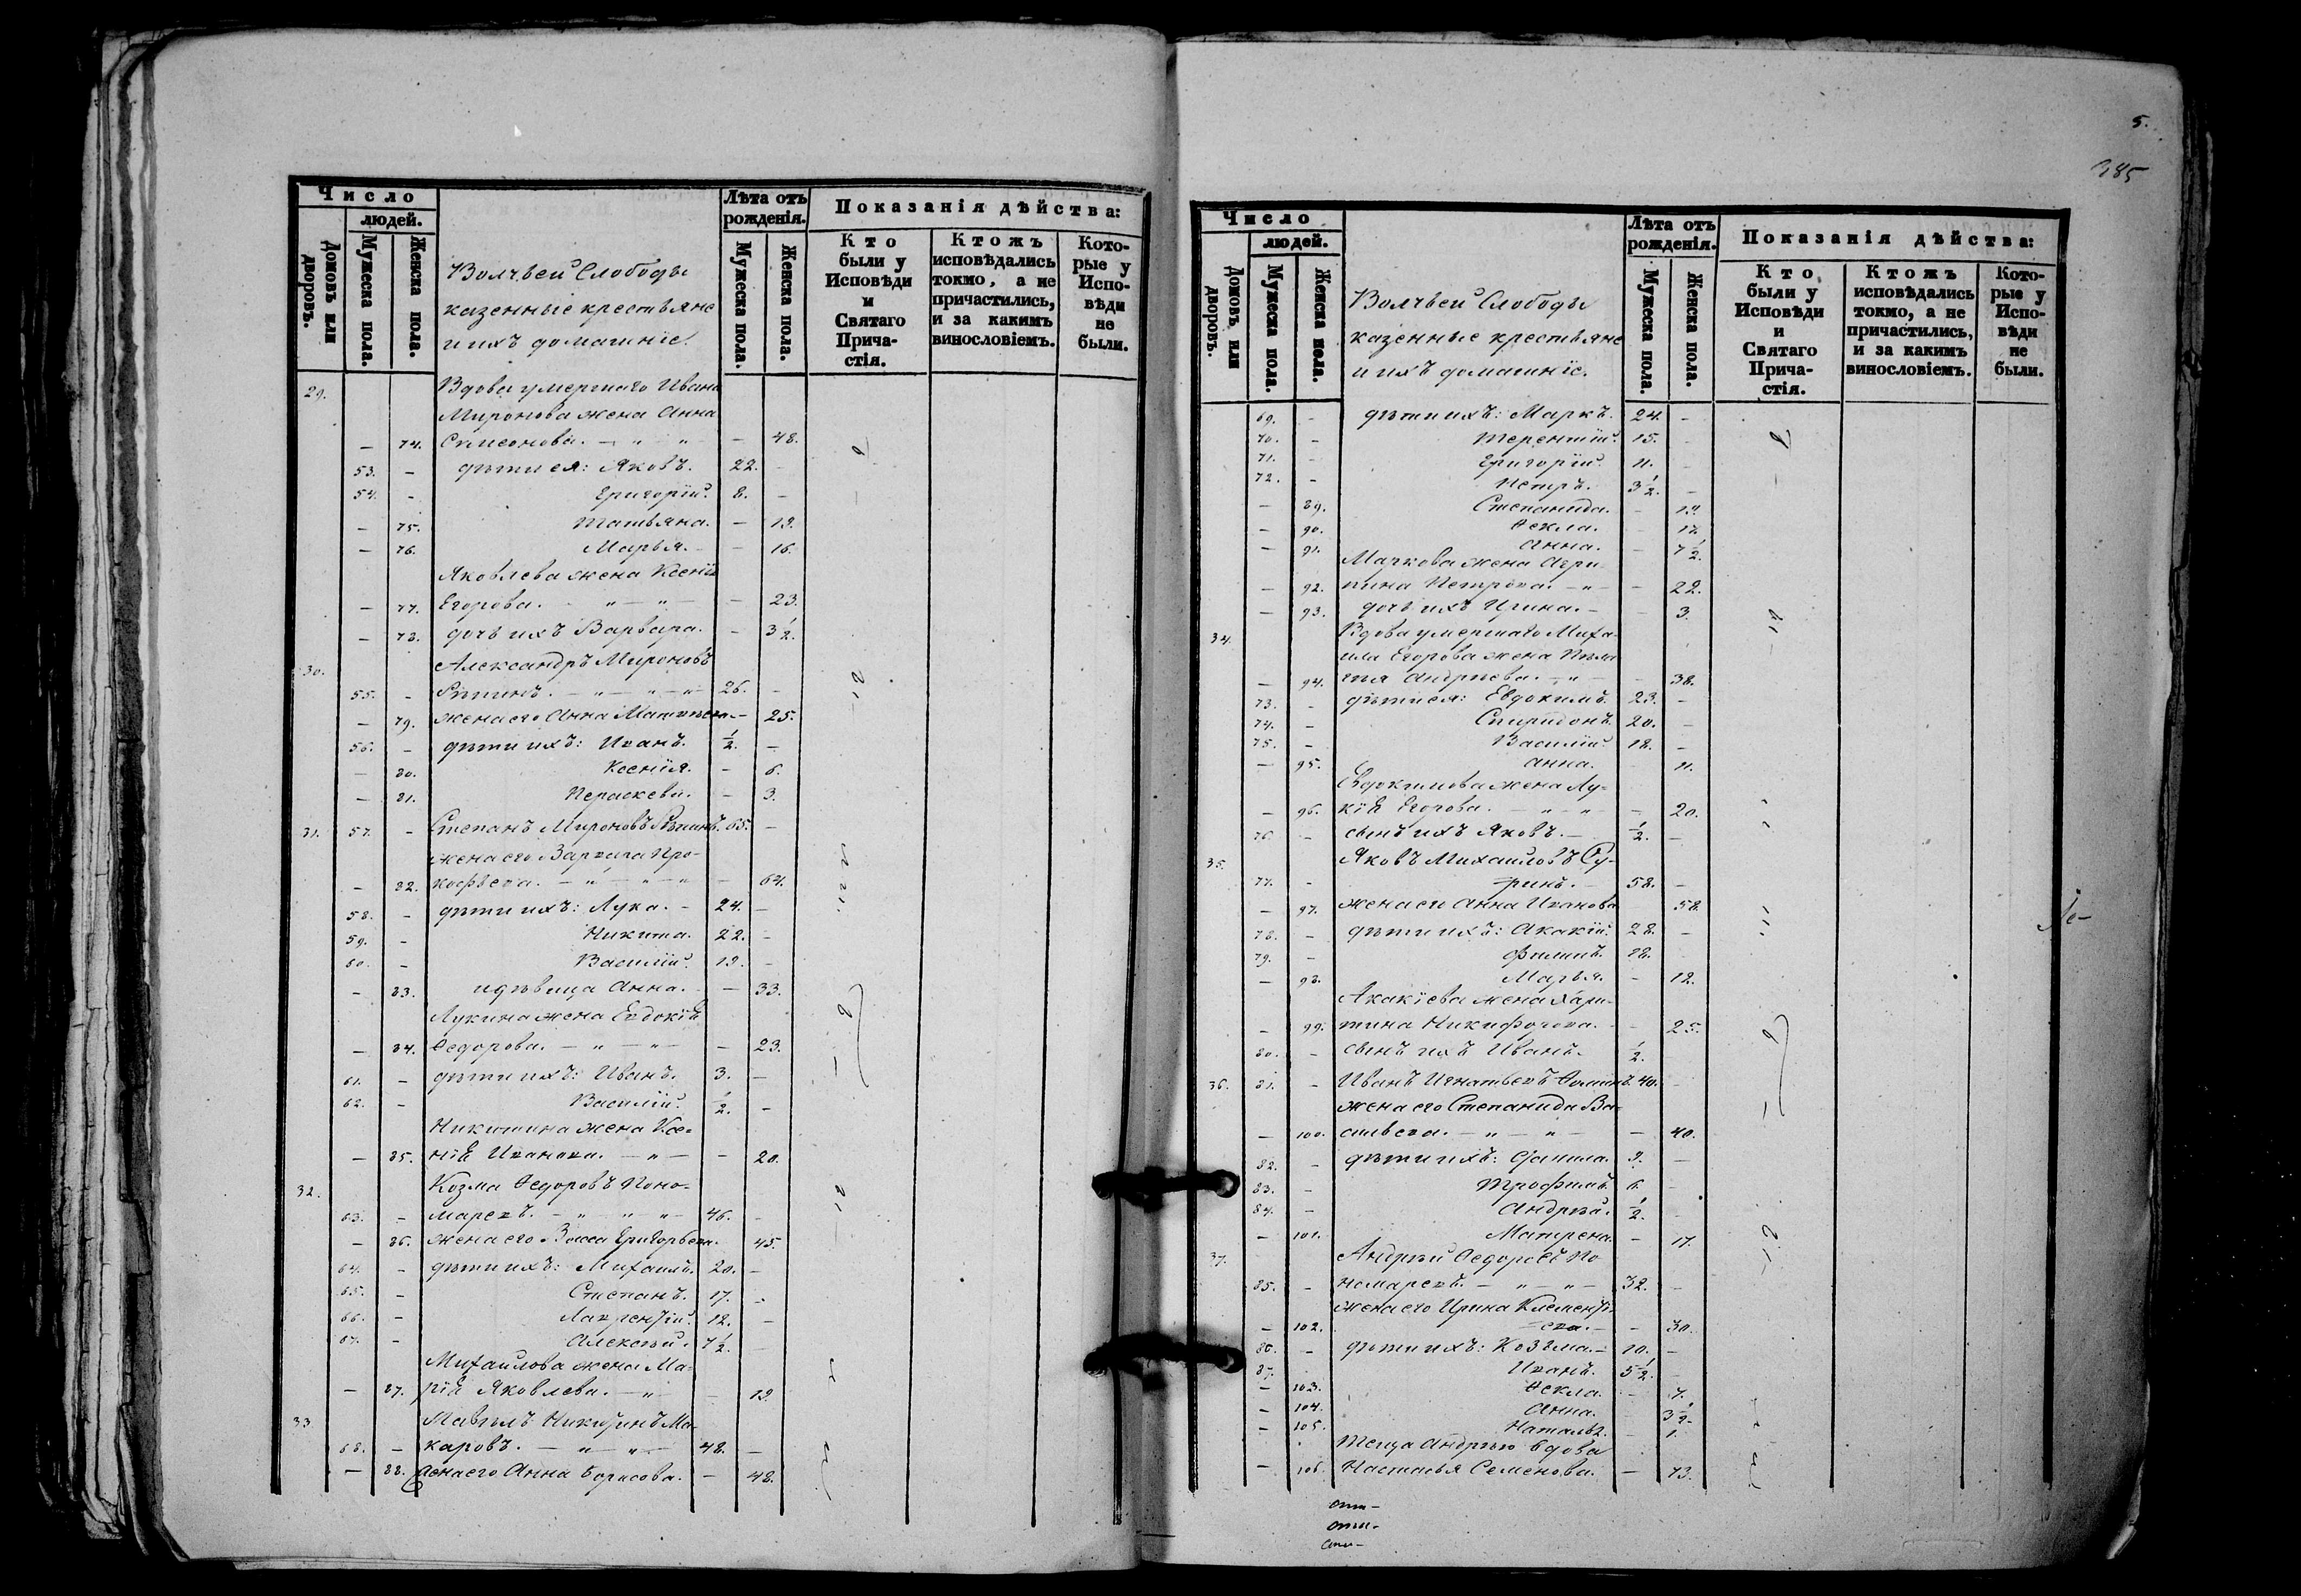 Число
людей.
Домовъ или дворовъ.
Мужеска пола.
Женска пола.
Волчьей Слободы
казенные крестьяне
и ихъ домашніе.
Лѣта отъ
рожденія.
Мужеска пола.
Женска пола.
Показанія дѣйства:
Кто
были у
Исповѣди
и
Святаго
Прича-
стія.
Ктожъ
исповѣдались
токмо, а не
причастились,
и за какимъ
винословіемъ.
Кото-
рые у
Испо-
вѣди
не
были.
29. Вдова умершаго Ивана
Миронова жена Анна
— 74. Симеонова. — " — " — 48.
53. — дѣти ея: Яковъ. 22. —
54. — Григорій. 8. —
— 75. Татьяна. — 19.
— 76. Марья. — 16.
Яковлева жена Ксенія
— 77. Егорова. " — " — — 23.
— 78. дочь ихъ Варвара. — 3 1/2.
30. Александръ Мироновъ
55. — — " — " — 26. —
— 79. жена его Анна Матвѣева. — 25.
56. — дѣти ихъ: Иванъ. 1/2. —
— 80. Ксенія. — 6.
— 81. Параскева. — 3.
31. 57. — Степанъ Мироновъ 65. —
жена его Варвара Про-
— 82. кофьева. — " — " — — 64.
58. — дѣти ихъ: Лука. — 24. —
59. — Никита. 22. —
60. — Василій. 19. —
— 83. и дѣвица Анна. — 33.
Лукина жена Евдокія
— 84. Ѳедорова. — " — " — — 23.
61. — дѣти ихъ: Иванъ. 3. —
62. — Василій. 1/2. —
Никитина жена Ксе-
— 85. нія Иванова. — " — — 20.
32. Козма Ѳедоровъ Поно-
63. — маревъ. — " — " — " — 46. —
— 86. жена его Васса Григорьева. 45.
64. — дѣти ихъ: Михаилъ. 20. —
65. — Степанъ. 17. —
66. — Лаврентій. 12. —
67. — Алексѣй. 7 1/2. —
Михаилова жена Ма-
— 87. рія Яковлева. — " — 19.
33. Никитинъ Ма-
68. — каровъ. — " — " — 48. —
— 88. жена его Анна Борисова. — 48.
5.
385
Число
людей.
Домовъ или дворовъ.
Мужеска пола.
Женска пола.
Волчьей Слободы
казенные крестьяне
и ихъ домашніе.
Лѣта отъ
рожденія.
Мужеска пола.
Женска пола.
Показанія дѣйства:
Кто
были у
Исповѣди
и
Святаго
Прича-
стія.
Ктожъ
исповѣдались
токмо, а не
причастились,
и за какимъ
винословіемъ.
Кото-
рые у
Испо-
вѣди
не
были.
69. — дѣти ихъ: Маркъ. 24. —
70. — Терентій. 15. —
71. — Григорій. 11. —
72. — Петръ. 3 1/2. —
— 89. Степанида. — 19.
— 90. Ѳекла. — 17.
— 91. Анна. — 7 1/2.
Маркова жена Агри-
— 92. пина Петрова. — " — — 22.
— 93. дочь ихъ Ирина. — — 3.
34. Вдова умершаго Миха-
ила Егорова жена Пела-
— 94. гія Андреева. — " — — 38.
73. — дѣти ея: Евдокимъ. 23. —
74. — Спиридонъ. 20. —
75. — Василій. 18. —
— 95. Анна. — 11.
Евдокимова жена Лу-
— 96. кія Егорова. — " — " — 20.
76. — сынъ ихъ Яковъ. — 1/2. —
35. Яковъ Михаиловъ Су-
77. — ринъ. — 58. —
— 97. жена его Анна Иванова 58.
78. — дѣти ихъ: Акакій. 28. —
79. — Филипъ. 18. —
— 98. Марья. — 12.
Акакіева жена Хари-
— 99. тина Никифорова. — — 25.
80. — сынъ ихъ Иванъ. 1/2. —
36. 81. — Иванъ Игнатьевъ Ѳоминъ. 40. —
жена его Степанида Ва-
— 100. сильева. — " — " — — 40.
82. — дѣти ихъ: Данила. 9. —
83. — Трофимъ. 6. —
84. — Андрей. 1/2. —
— 101. Матрена. — 17.
37. Андрей Ѳедоровъ По-
85. — номаревъ. — " — " — 32. —
жена его Ирина Клементь-
— 102. ева. — — 30.
86. — дѣти ихъ: Козьма. — 10. —
87. Иванъ. 5 1/2. —
— 103. Ѳекла. — 7.
— 104. Анна. 3 1/2.
— 105. Наталья. — 1.
Теща Андрею вдова
— 106. Настасья Семенова. — 73.